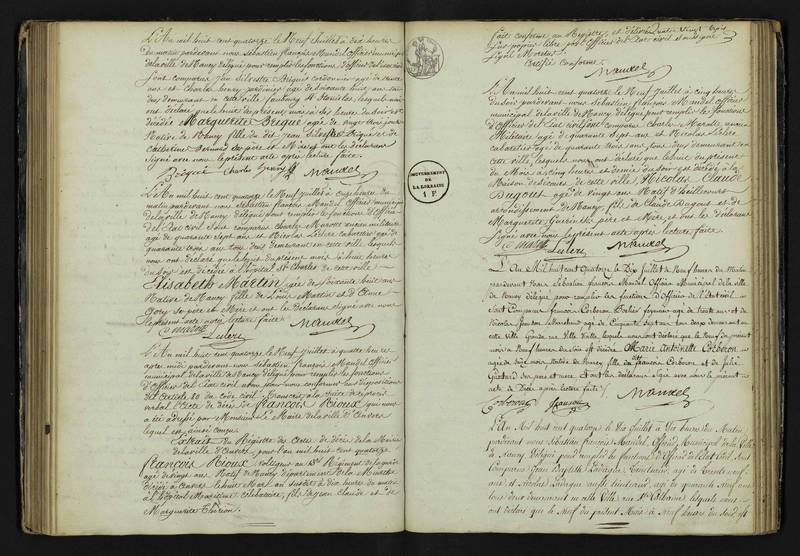 L'An mil huit cent quatorze le Neuf Juillet à dix heures
du matin pardevant nous Sébastien françois Mandel Officier municipal
de la ville de Nancy délégué pour remplir les fonctions d'Officier de l'Etat civil
sont comparus Jean Silvestre Brégué cordonnier agé de
ans et Charles henry jardinier agé de soixante huit ans tous
deux demeurant en cette ville faubourg St Stanislas, lesquels nous
ont déclaré que le huit du présent mois à heures du soir est
décédée Marguerite Brégué agée de vingt trois jours
Native de Nancy fille du dit Jean Silvestre Brégué et de
Catherine ses père et Mère et ont les déclarans
Signé avec nous le présent acte après lecture faite.
Brégué Charles henry Mandel
L'An mil huit cent quatorze le Neuf Juillet à onze heures du
matin pardevant nous Sébastien François Mandel Officier municipal
de la ville de Nancy délégué pour remplir les fonctions d'Officier
de l'Etat civil sont comparus Charles Marotte ancien militaire
agé de quarante sept ans et Nicolas Leclere cabaretier agé de
quarante trois ans tous deux demeurant en cette ville lesquels
nous ont déclaré que le huit du présent mois à huit heures
du soir est décédée à l'hôpital St Charles de cette ville
Elisabeth Martin agée de soixante huit ans
Native de Nancy fille de Louis Martin et d'Anne
Gory ses père et Mère et ont les déclarans Signé avec nous
le présent acte après lecture faite.
Leclere Mandel
L'An mil huit cent quatorze le Neuf Juillet à quatre heures
après midi pardevant nous Sébastien François Mandel Officier
municipal de la ville de Nancy délégué pour remplir les fonctions
d'Officier de l'Etat civil avons, pour nous conformer aux dispositions
de l'Article 80 du code civil français, à la suite de procès
verbal l'Acte de décès de françois Rioux qui nous
a été adressé par Monsieur le Maire de la ville d'Anvers
lequel est ainsi conçu
Extrait du Registre des Actes de décès de la Mairie
de la ville d'Anvers, pour l'an mil huit cent quatorze
françois Rioux voltigeur au Régiment de ligne
agé de vingt ans Natif de Nancy département de la Meurthe
décédé à Anvers le huit Mars an susdit à dix heures du matin
à l'hôpital Maritime célibataire, fils de Jean Claude et de
Marguerite Thirion.
fait conforme au Registre, et délivré
Sur papier libre par l'Officier de l'Etat civil soussigné
Signé Moretus
Certifié Conforme.
Mandel
L'An mil huit cent quatorze le Neuf Juillet à cinq heures
du soir pardevant nous Sébastien françois Mandel officier
municipal de la ville de Nancy délégué pour remplir les fonctions
d'Officier de l'Etat civil sont comparus Charles Marotte ancien
Militaire agé de quarante Sept ans et Nicolas Leclere
cabaretier agé de quarante trois ans, tous deux demeurant en
cette ville, lesquels nous ont déclaré que le huit du présent
du Mois à cinq heures et demie du Soir est décédé à la
Maison de Secours de cette ville, Nicolas Claude
Dagout agé de vingt ans Natif d'haillecourt
arrondissement de Nancy, fils de Claude Dagout et de
Marguerite ses père et Mère, et ont les déclarans
Signé avec nous le présent acte après lecture faite.
Leclere Mandel
L'An Mil huit cent Quatorze le Dix Juillet à Neuf heures du Matin
pardevant nous Sébastien françois Mandel Officier Municipal de la ville
de Nancy délégué pour remplir les fonctions d'Officier de l'Etat civil
sont Comparus françois Corboron agé de trente ans et de
Nicolas agé de Cinquante Sept ans tous deux demeurant en
cette ville lesquels nous ont déclaré que le Neuf du présent
mois à Neuf heures du Soir est décédée Marie Antoinette Corboron
agée de Native de Nancy fille du dit françois Corboron et de Julie
ses père et mère et ont les déclarans signé avec nous le présent
acte de Décès après lecture faite.
Corboron Mandel
L'An Mil huit cent quatorze le Dix Juillet à Dix heures du Matin
pardevant nous Sébastien françois Mandel, Officier Municipal de la Ville
de Nancy, Délégué pour remplir les fonctions d'Officier de l'Etat Civil Sont
Comparus Jean Baptiste agé de trente neuf
ans et Nicolas aussi agé de quarante Neuf ans
tous deux demeurant en cette Ville lesquels nous
ont déclaré que le Neuf du présent Mois à Neuf heures du Soir est
GOUVERNEMENT
DE
LA LORRAINE
1 F